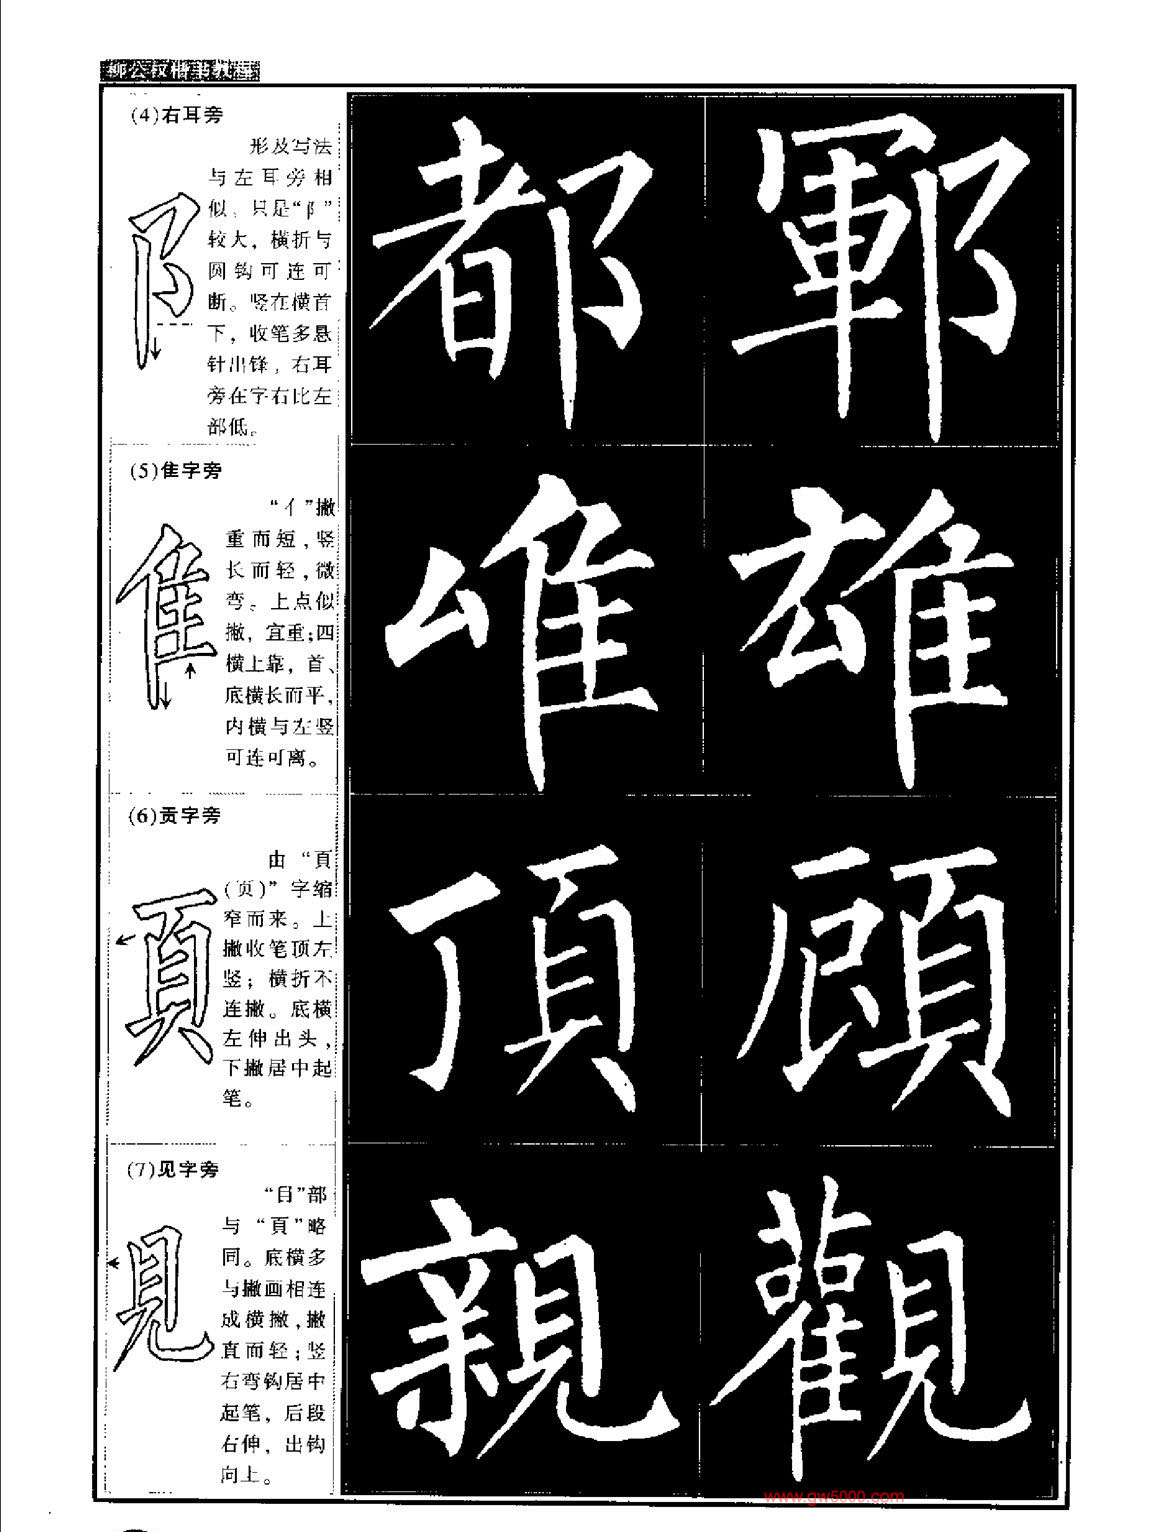 柳公权楷书教程
(4)右耳旁
形及写法
与左耳旁相
似。只是“阝”
较大，横折与
圆钩可连可
断。竖在横首
下，收笔多悬
针出锋，右耳
旁在字右比左
部低。
都 鄆
(5)隹字旁
“亻”撇
重而短，竖
长而轻，微
弯。上点似
撇，宜重；四
横上靠，首、
底横长而平，
内横与左竖
可连可离。
雄
(6)贡字旁
由“頁
(页)”字缩
窄而来。上
撇收笔顶左
竖；横折不
连撇。底横
左伸出头，
下撇居中起
笔。
頁
頂 顧
(7)见字旁
“目”部
与“頁”略
同。底横多
与撇画相连
成横撇，撇
直而轻；竖
右弯钩居中
起笔，后段
右伸，出钩
向上。
見
親 觀
www.gw5000.com